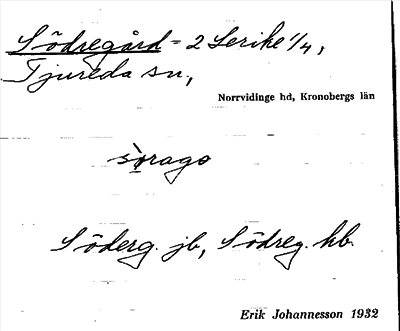 Södregård = 2 Serike 1/4,
Tjureda sn,
Norrvidinge hd, Kronobergs län
sørago
Söderg. jb, Södreg. kb.
Erik Johannesson 1932